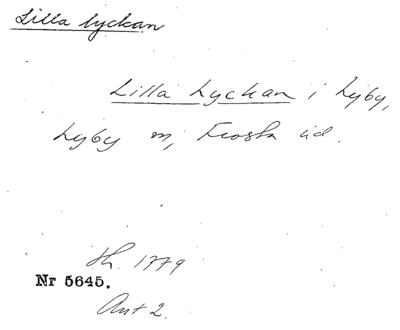 Lilla lyckan
Lilla Lyckan i Lyby,
Lyby sn, Frosta hd.
Sh. 1779
Nr 5645.
Akt 2.